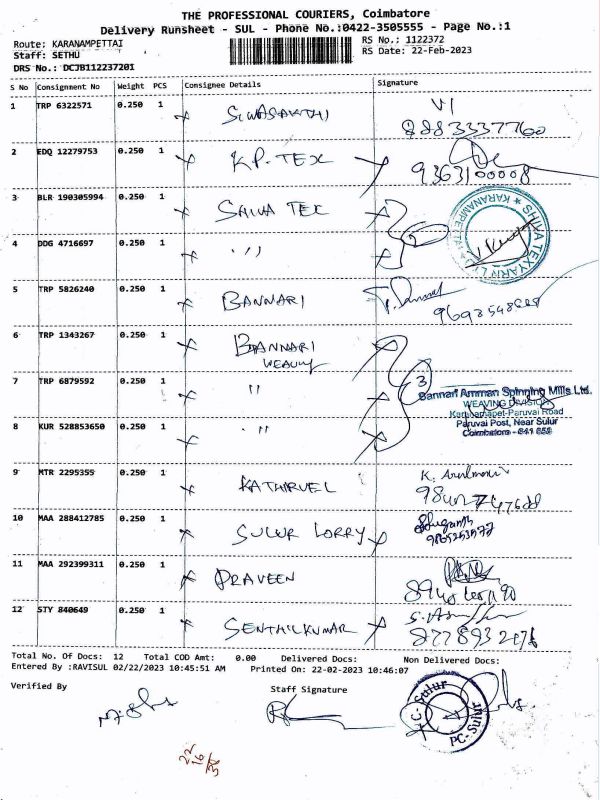 THE PROFESSIONAL COURIERS, Coimbatore
Delivery Runsheet - SUL - Phone No.:0422-3505555 - Page No.:1
Route: KARANAMPETTAI
RS No.: 1122372
Staff: SETHU
RS Date: 22-Feb-2023
DRS No.: DCJB112237201
S No Consignment No Weight PCS Consignee Details Signature
1 TRP 6322571 0.250 1 SIVASAKTHI VI
8883337760
2 EDQ 12279753 0.250 1 K.P. TEX
9363100008
3 BLR 190305994 0.250 1 SHIVA TEX
SHIVA TEXYARN LTD ★ KARANAMPETTAI
4 DDG 4716697 0.250 1 "
5 TRP 5826240 0.250 1 BANNARI
6 TRP 1343267 0.250 1 BANNARI
WEAVING
7 TRP 6879592 0.250 1 " 3
Bannari Amman Spinning Mills Ltd.
WEAVING DIVISION
Karanampet-Paruvai Road
8 KUR 528853650 0.250 1 " Paruvai Post, Near Sulur
Coimbatore - 641 658
9 MTR 2295355 0.250 1 KATHIRVEL K.
10 MAA 288412785 0.250 1 SULUR LORRY
11 MAA 292399311 0.250 1 PRAVEEN
12 STY 840649 0.250 1 SENTHILKUMAR
Total No. Of Docs: 12 Total COD Amt: 0.00 Delivered Docs: Non Delivered Docs:
Entered By :RAVISUL 02/22/2023 10:45:51 AM Printed On: 22-02-2023 10:46:07
Verified By Staff Signature
PC-Sulur